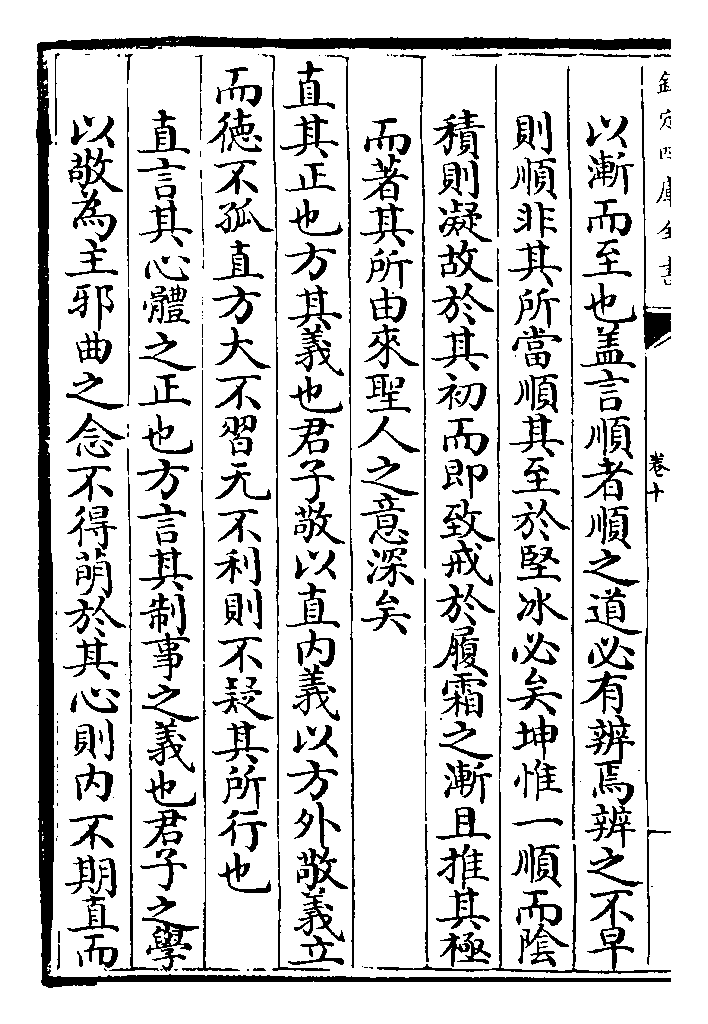 欽定四庫全書
卷十
以漸而至也盖言順者順之道必有辨焉辨之不早
則順非其所當順其至於堅冰必矣坤惟一順而陰
積則凝故於其初而即致戒於履霜之漸且推其極
而著其所由來聖人之意深矣
直其正也方其義也君子敬以直内義以方外敬義立
而德不孤直方大不習无不利則不疑其所行也
直言其心體之正也方言其制事之義也君子之學
以敬為主邪曲之念不得萌於其心則内不期直而